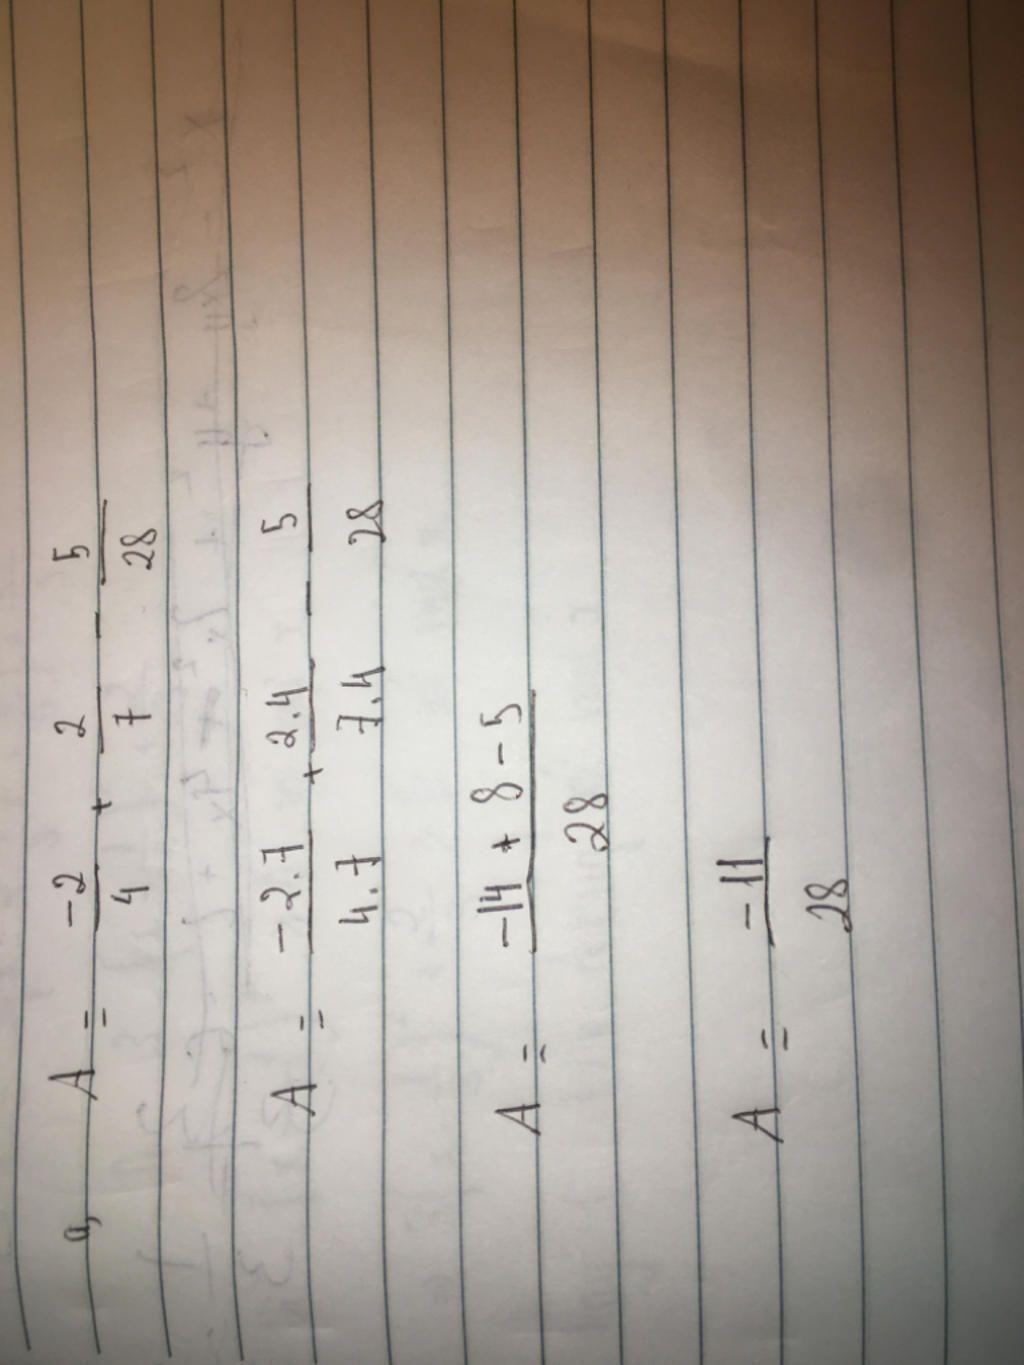 a, A = -2/4 + 2/7 - 5/28
A = -2.7/4.7 + 2.4/7.4 - 5/28
A = -14 + 8 - 5/28
A = -11/28